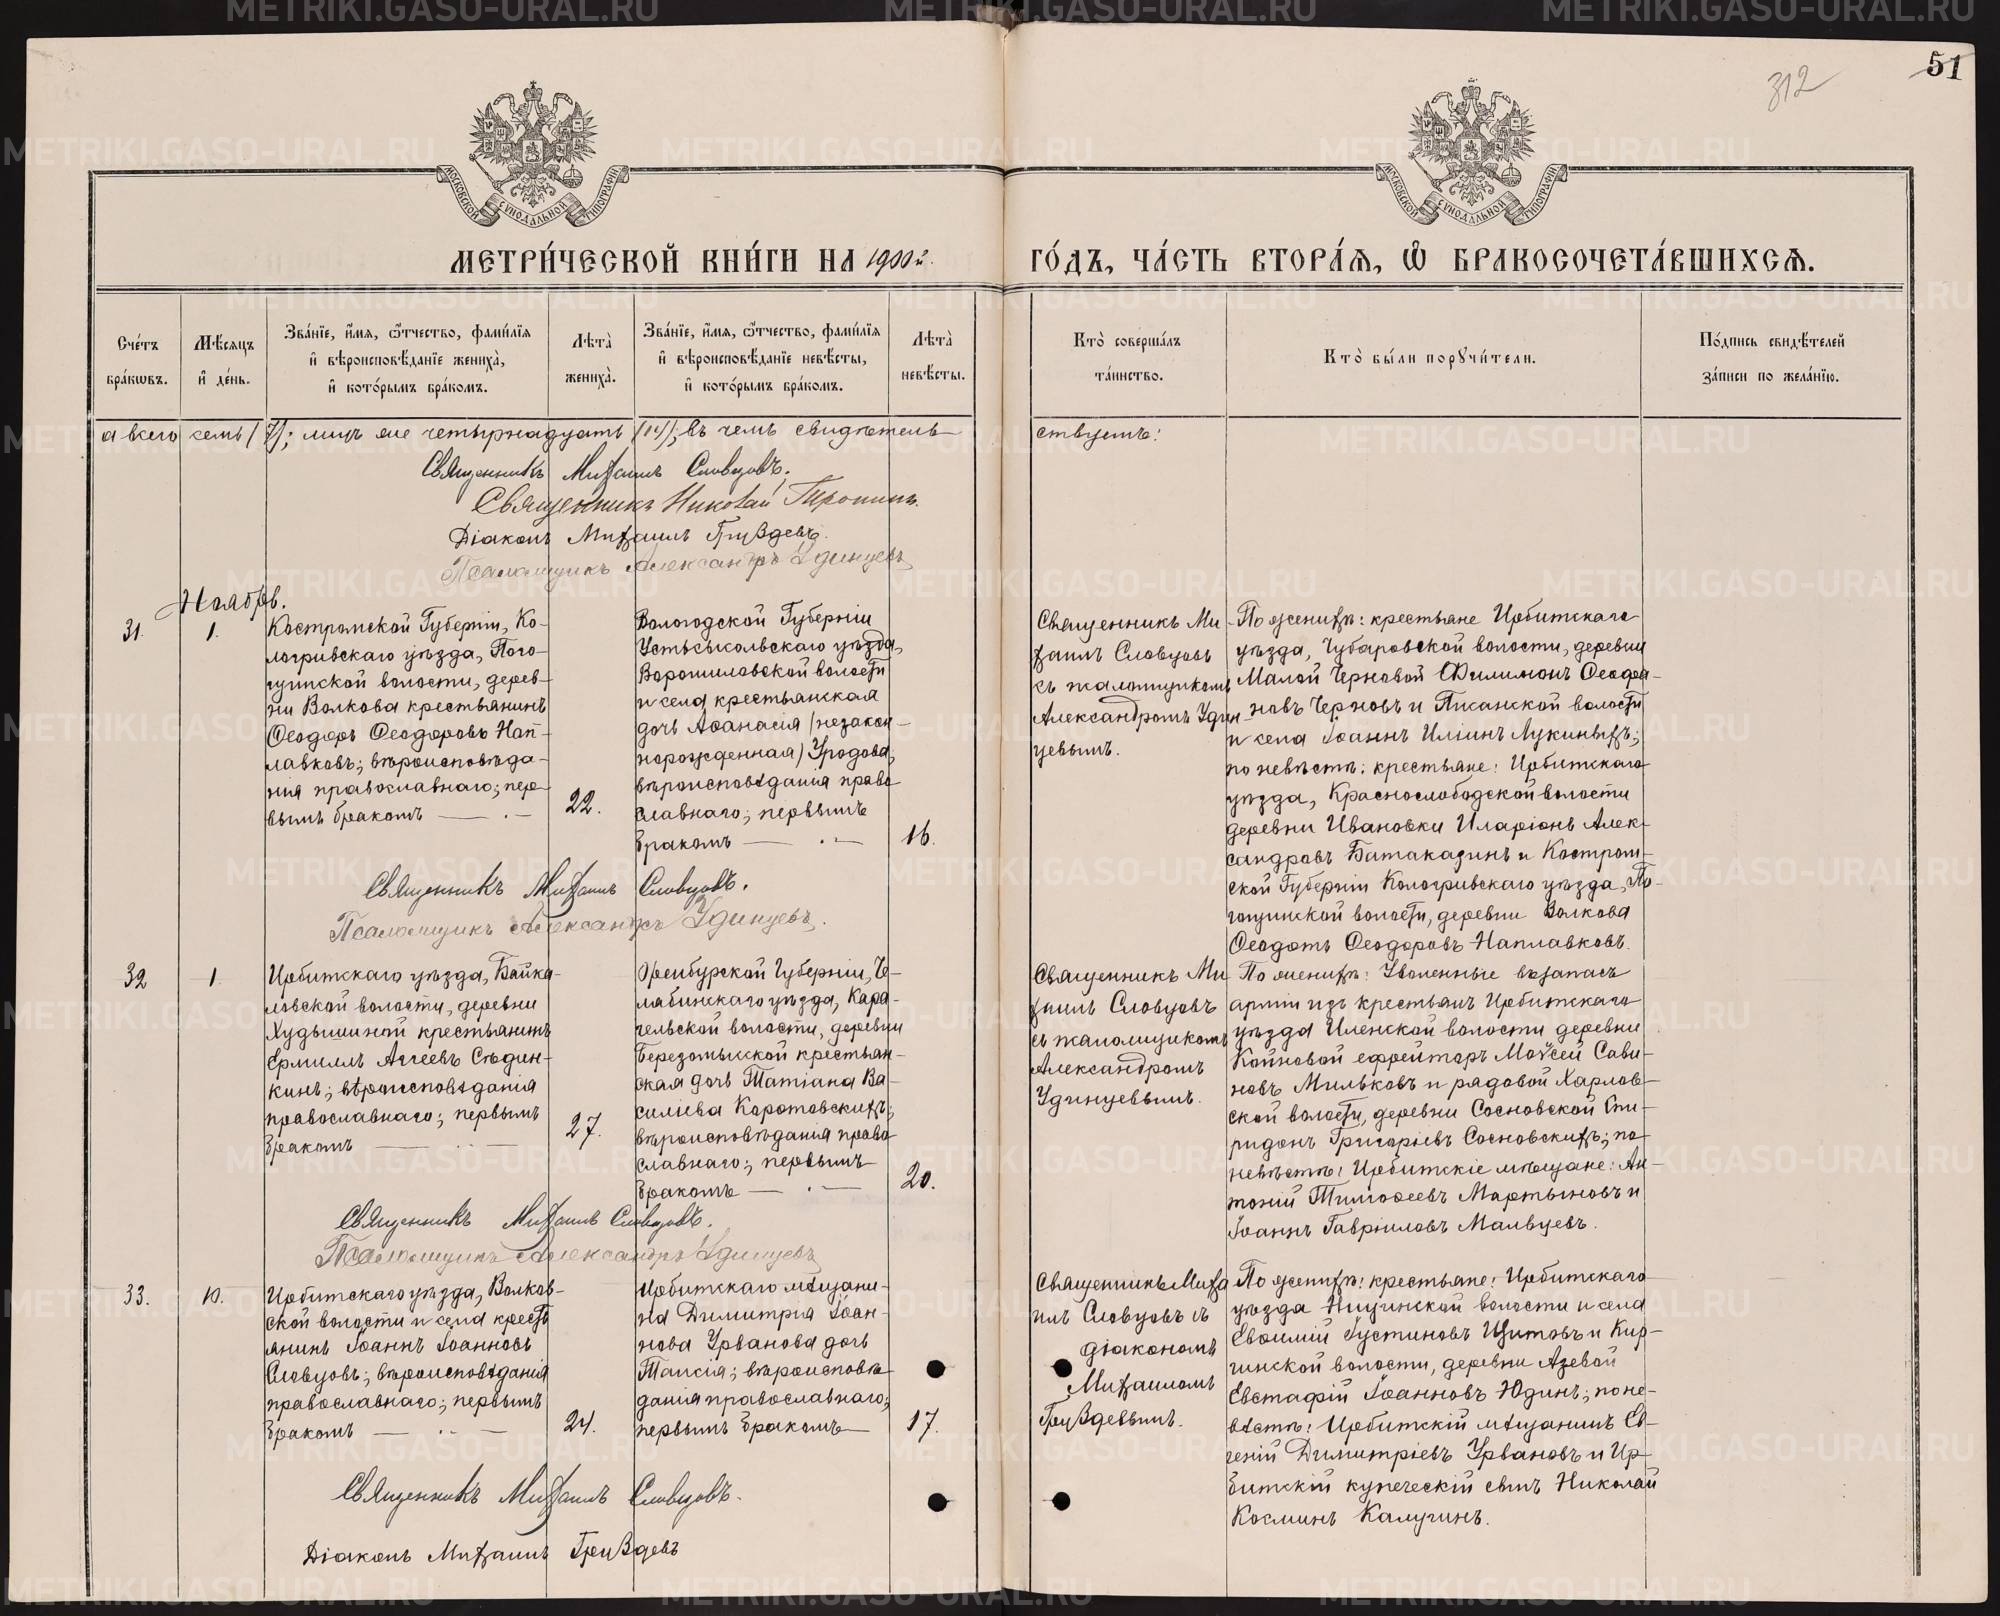 51
312
МОСКОВСКОЙ СѴНОДАЛЬНОЙ ТИПОГРАФІИ
МОСКОВСКОЙ СѴНОДАЛЬНОЙ ТИПОГРАФІИ
МЕТРИ́ЧЕСКОЙ КНИ́ГИ НА 1900й. ГО́ДЪ, ЧА́СТЬ ВТОРА́Ѧ, Ѽ БРАКОСОЧЕТА́ВШИХСѦ.
Сче́тъ
бра́кѡвъ.
Мѣ́сѧцъ
и҆ де́нь.
Зва́нїе, и҆́мѧ, ѻ҆́тчество, фами́лїѧ
и҆ вѣроисповѣ́данїе жениха̀,
и҆ кото́рымъ бра́комъ.
Лѣта̀
жениха̀.
Зва́нїе, и҆́мѧ, ѻ҆́тчество, фами́лїѧ
и҆ вѣроисповѣ́данїе невѣ́сты,
и҆ кото́рымъ бра́комъ.
Лѣта̀
невѣ́сты.
Кто̀ соверша́лъ
та́инство.
Кто̀ бы́ли порꙋчи́тели.
По́дпись свидѣ́телей
за́писи по жела́нїю.
а всего семь (7); лицъ же четырнадцать (14); въ чемъ свидѣтель-
ствуемъ:
Священникъ Михаилъ Словцовъ.
Священникъ Николай Тропинъ.
Діаконъ Михаилъ Груздевъ.
Псаломщикъ Александръ Удинцевъ
Ноябрь.
31.
1.
Костромской Губерніи, Ко-
логривскаго уѣзда, Пого-
щинской волости, дерев-
ни Волкова крестьянинъ
Ѳеодоръ Ѳеодоровъ Нап-
лавковъ; вѣроисповѣда-
нія православнаго; пер-
вымъ бракомъ
22.
Вологодской Губерніи
Устьсысольскаго уѣзда,
Ворошиловской волости
и села крестьянская
дочь Аѳанасія (незакон-
норожденная) Уродова,
вѣроисповѣданія право-
славнаго; первымъ
бракомъ
16.
Священникъ Ми-
хаилъ Словцовъ
съ псаломщикомъ
Александромъ Удин-
цевымъ.
По женихѣ: крестьяне Ирбитскаго
уѣзда, Чубаровской волости, деревни
Малой Черновой Филимонъ Ѳеофа-
новъ Черновъ и Писанской волости
и села Іоаннъ Иліинъ Лукиныхъ;
по невѣстѣ: крестьяне: Ирбитскаго
уѣзда, Краснослободской волости
деревни Ивановки Иларіонъ Алек-
сандровъ Батакадинъ и Костром-
ской Губерніи Кологривскаго уѣзда, По-
гощинской волости, деревни Волкова
Ѳеодотъ Ѳеодоровъ Наплавковъ.
Священникъ Михаилъ Словцовъ.
Псаломщикъ Александръ Удинцевъ.
32
1.
Ирбитскаго уѣзда, Байка-
ловской волости, деревни
Худышиной крестьянинъ
Ермилъ Аггеевъ Сѣдин-
кинъ; вѣроисповѣданія
православнаго; первымъ
бракомъ
27.
Оренбургской Губерніи, Че-
лябинскаго уѣзда, Кара-
чельской волости, деревни
Березомысской крестьян-
ская дочь Татіана Ва-
силіева Коротовскихъ;
вѣроисповѣданія право-
славнаго; первымъ
бракомъ
20.
Священникъ Ми-
хаилъ Словцовъ
съ псаломщикомъ
Александромъ
Удинцевымъ.
По женихѣ: Уволенные въ запасъ
арміи изъ крестьянъ Ирбитскаго
уѣзда Иленской волости деревни
Койновой ефрейторъ Моѵсей Сави-
новъ Мильковъ и рядовой Харлов-
ской волости, деревни Сосновской Спи-
ридонъ Григоріевъ Сосновскихъ; по
невѣстѣ: Ирбитскіе мѣщане: Ан-
тоній Тимоѳеевъ Мартыновъ и
Іоаннъ Гавріиловъ Мальцевъ.
Священникъ Михаилъ Словцовъ.
Псаломщикъ Александръ Удинцевъ
33.
10.
Ирбитскаго уѣзда, Волков-
ской волости и села кресть-
янинъ Іоаннъ Іоанновъ
Словцовъ; вѣроисповѣданія
православнаго; первымъ
бракомъ
24.
Ирбитскаго мѣщани-
на Димитрія Іоан-
нова Урванова дочь
Таисія; вѣроисповѣ-
данія православнаго;
первымъ бракомъ
17.
Священникъ Миха-
илъ Словцовъ съ
діакономъ
Михаиломъ
Груздевымъ.
По женихѣ: крестьяне: Ирбитскаго
уѣзда Ницинской волости и села
Евѳимій Густиновъ Щитовъ и Кир-
гинской волости, деревни Азевой
Евстафій Іоанновъ Юдинъ; по не-
вѣстѣ: Ирбитскій мѣщанинъ Ев-
геній Димитріевъ Урвановъ и Ир-
битскій купеческій сынъ Николай
Косминъ Калугинъ.
Священникъ Михаилъ Словцовъ.
Діаконъ Михаилъ Груздевъ
METRIKI.GASO-URAL.RU